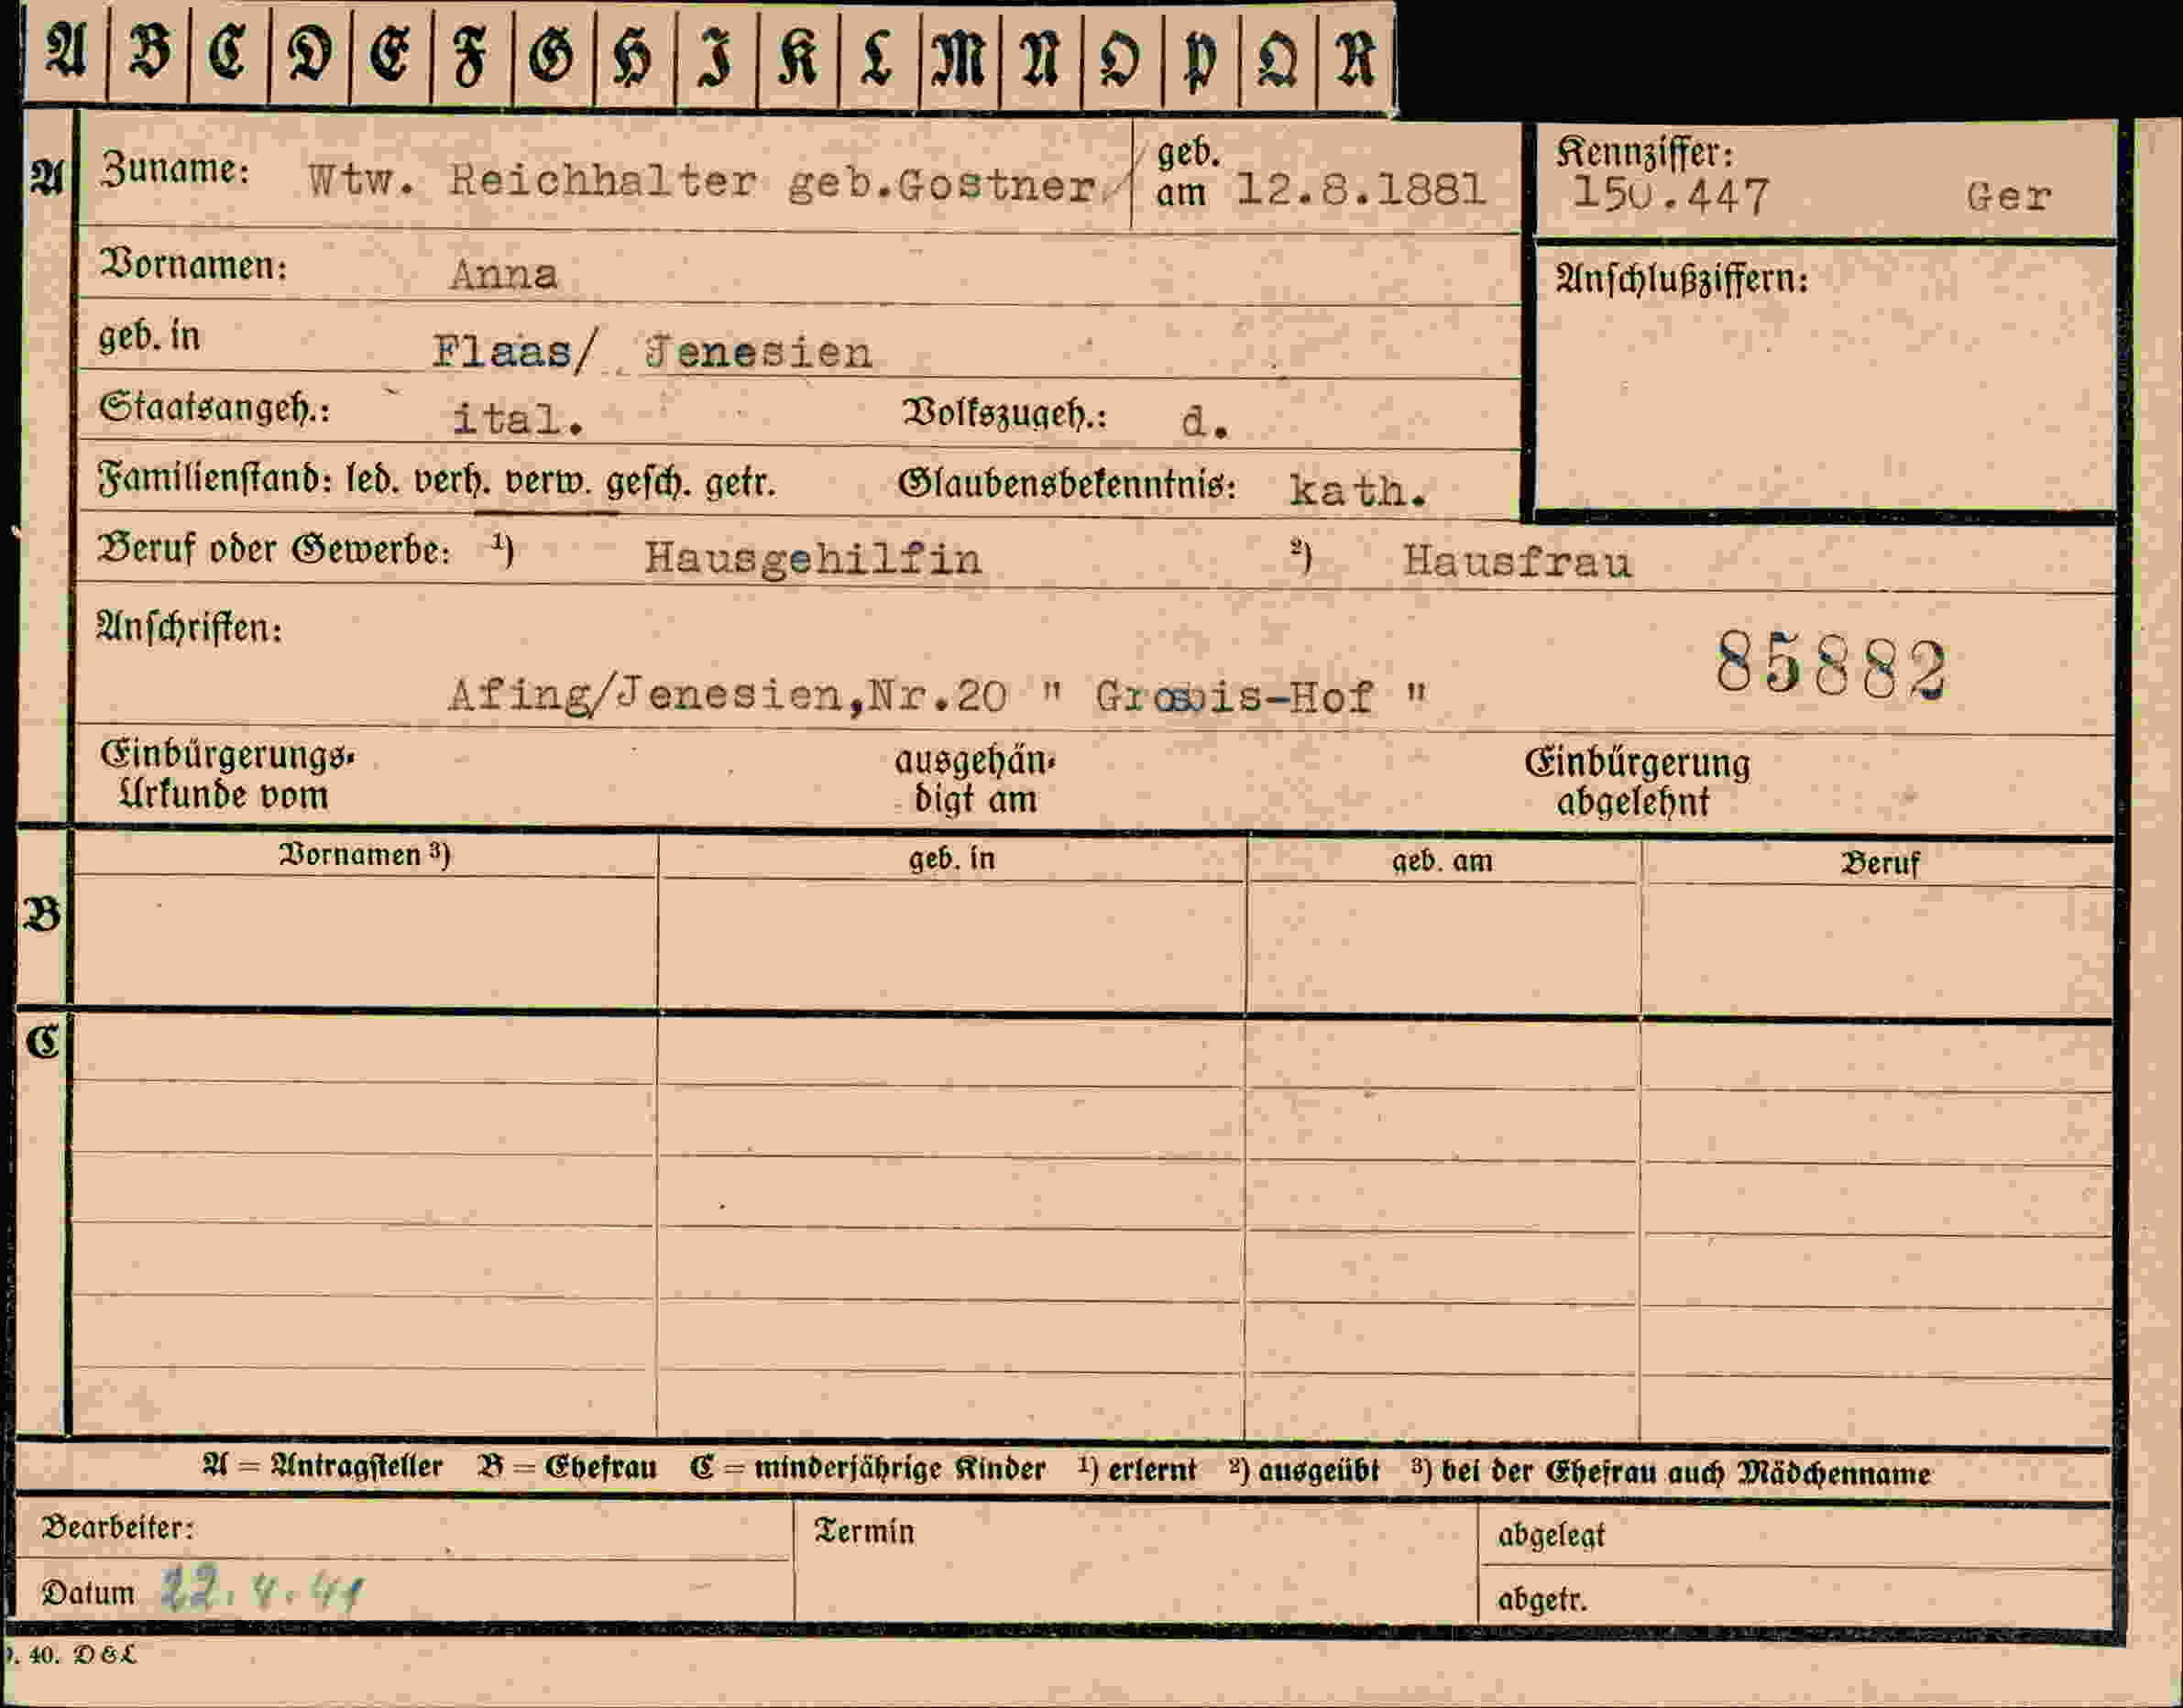 A B C D E F G H I K L M N O P Q R
A Zuname: Wtw. Reichhalter geb.Gostner/ geb. am 12.8.1881
Kennziffer:
150.447 Ger
Vornamen: Anna
Anschlußziffern:
geb. in Flaas/ Jenesien
Staatsangeh.: ital. Volkszugeh.: d.
Familienstand: led. verh. verw. gesch. getr. Glaubensbekenntnis: kath.
Beruf oder Gewerbe: ¹) Hausgehilfin ²) Hausfrau
Anschriften:
85882
Afing/Jenesien,Nr.20 " -Hof "
Einbürgerungs-
Urkunde vom
ausgehän-
digt am
Einbürgerung
abgelehnt
Vornamen ³) geb. in geb. am Beruf
B
C
A = Antragsteller B = Ehefrau C = minderjährige Kinder ¹) erlernt ²) ausgeübt ³) bei der Ehefrau auch Mädchenname
Bearbeiter: Termin abgelegt
Datum 22.4.41 abgetr.
. 40. D & L